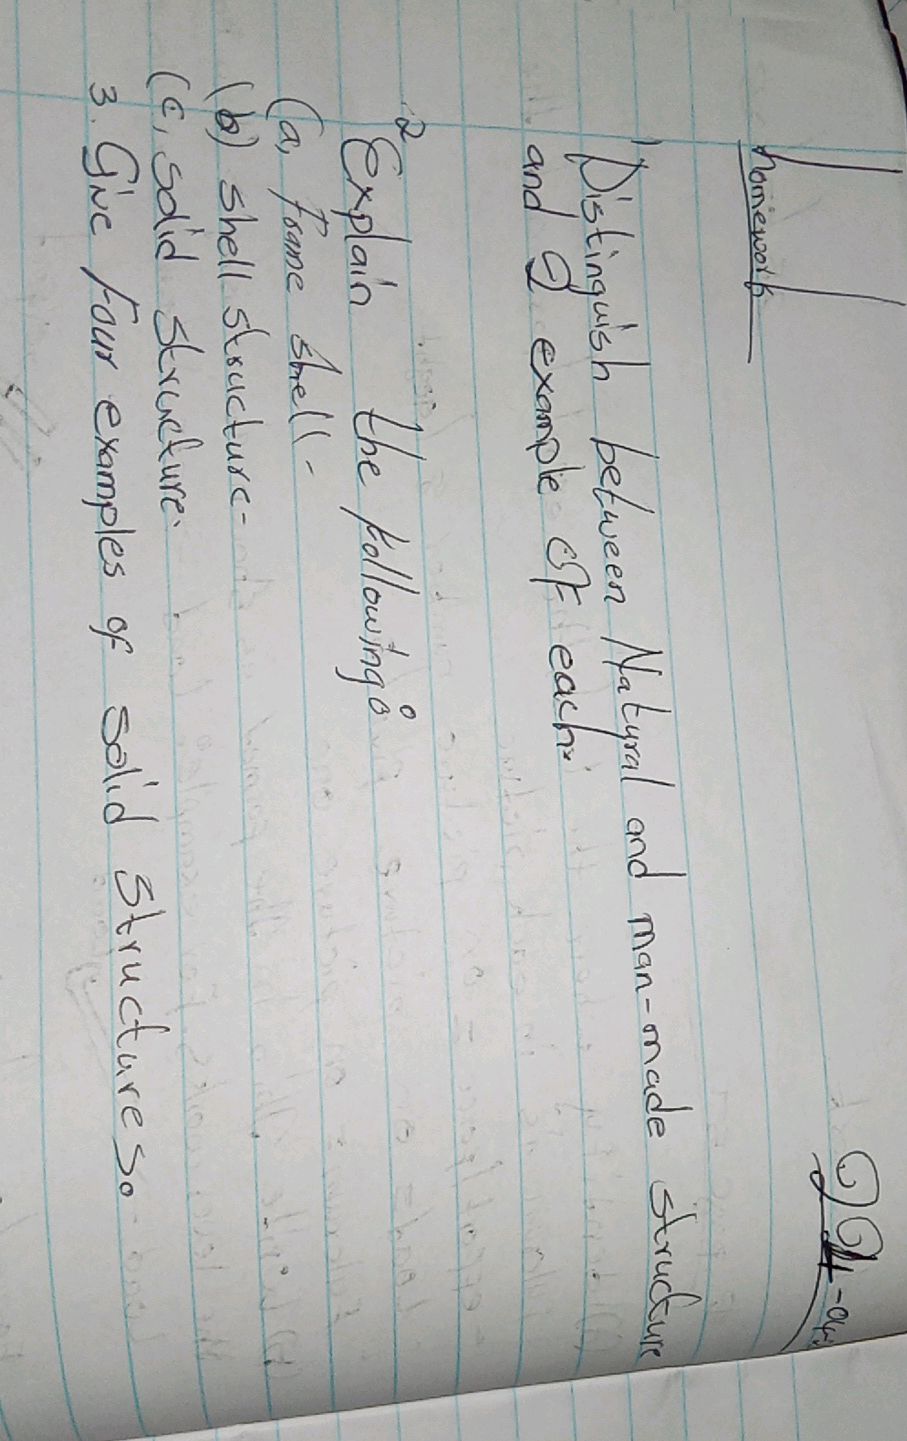 homework
1 Distinguish between Natural and man-made structure
and 2 example of each.
2 Explain the following:
(a, frame shell-
(b) shell structure-
(c, solid structure.
3. Give four examples of solid structures.